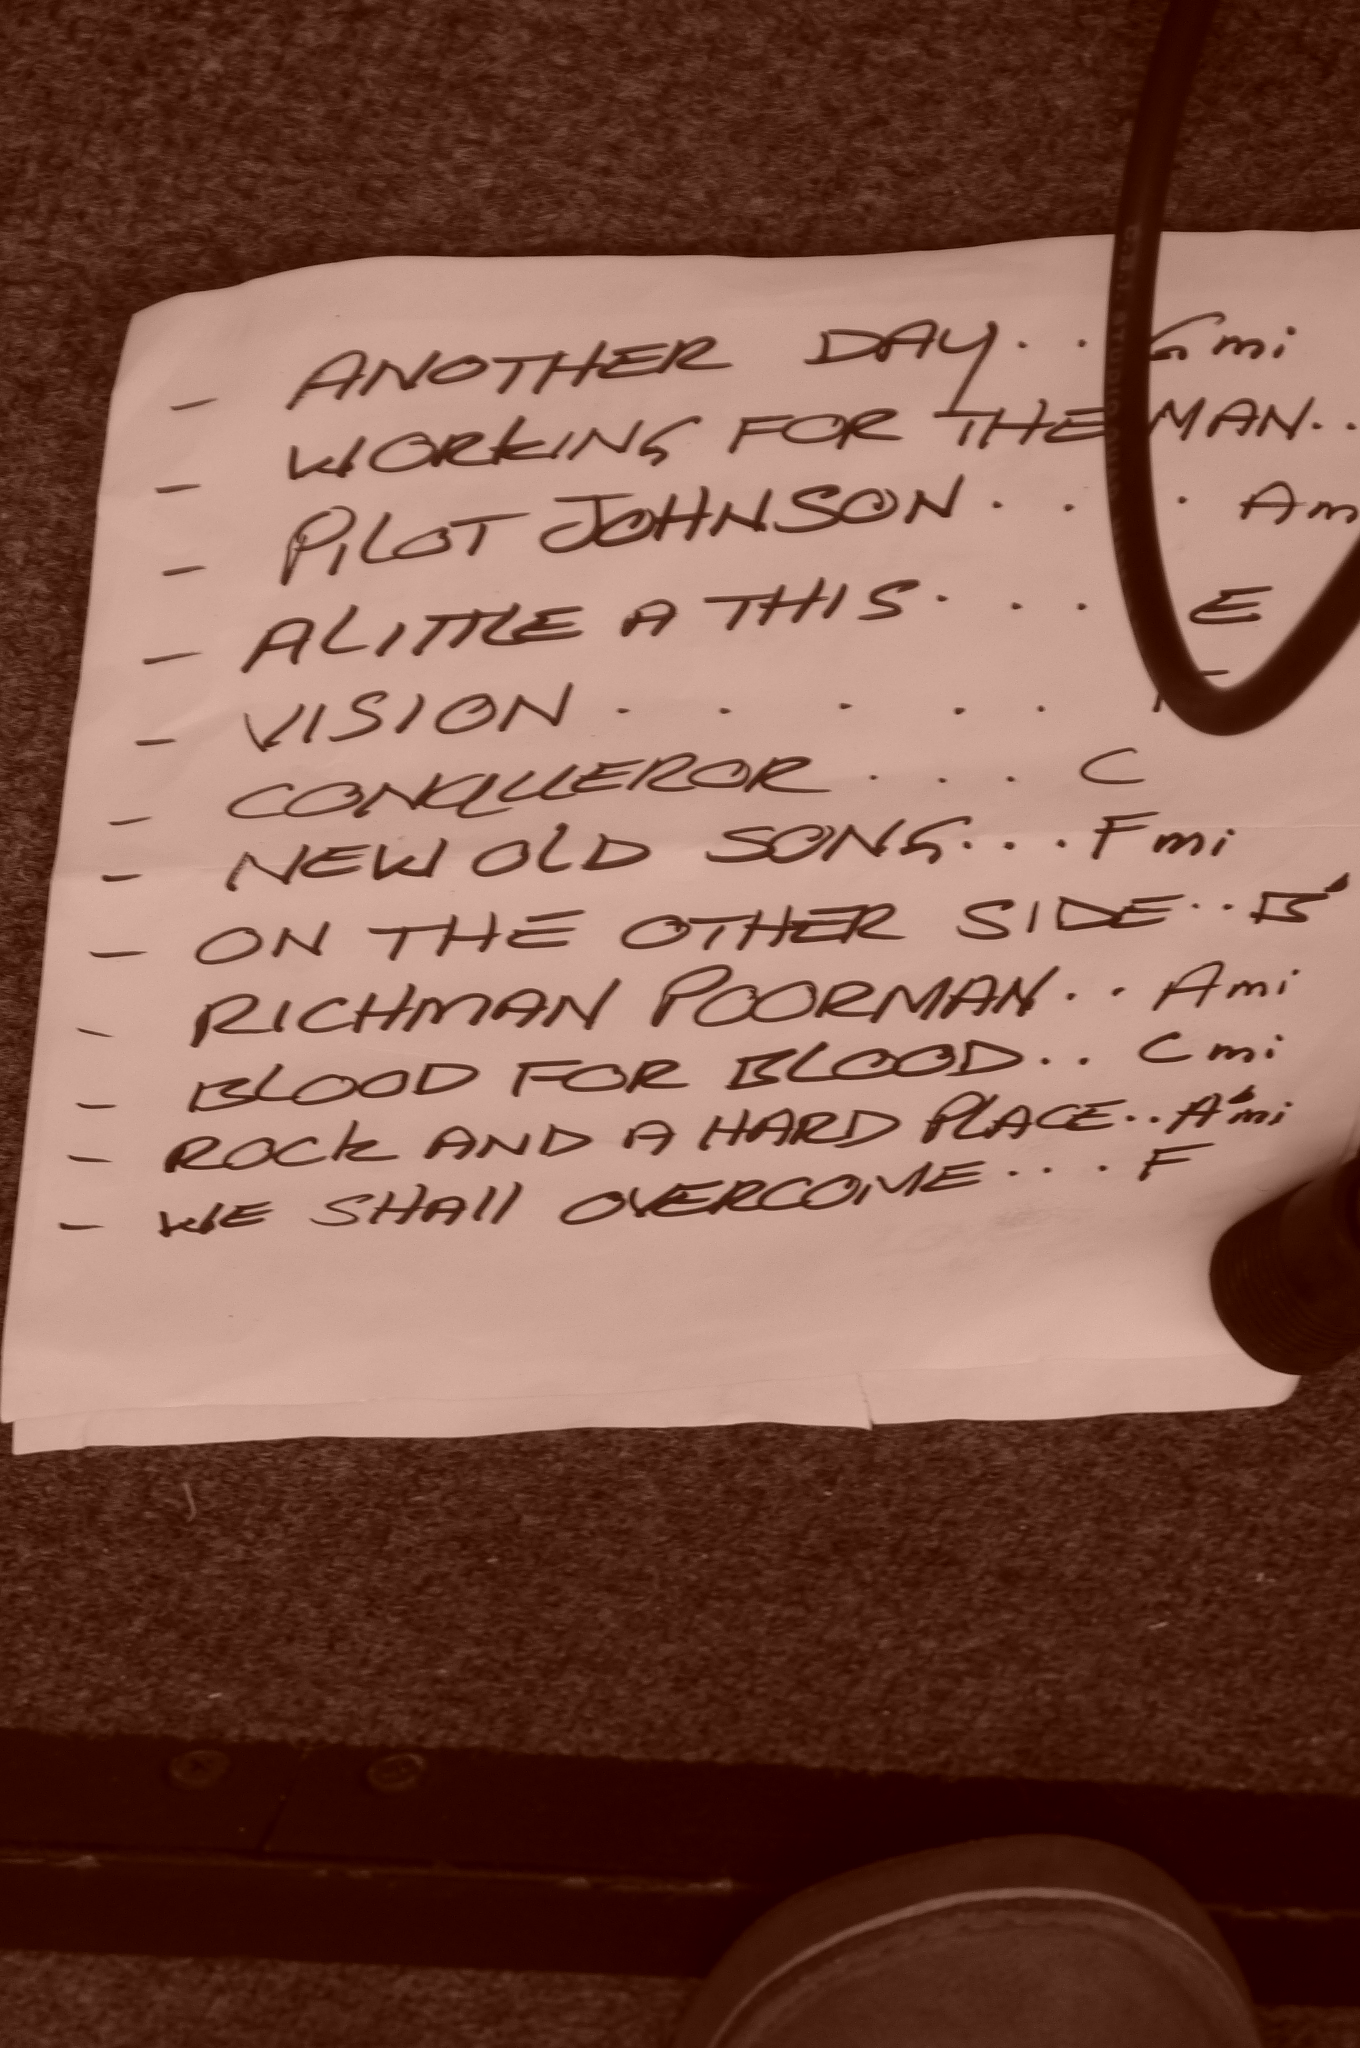 - ANOTHER DAY.. Gmi
- WORKING FOR THE MAN..
- PILOT JOHNSON... Am
- A LITTLE A THIS... E
- VISION.....
- CONQUEROR... C
- NEW OLD SONG... Fmi
- ON THE OTHER SIDE.. B♭
- RICHMAN POORMAN.. Ami
- BLOOD FOR BLOOD.. Cmi
- ROCK AND A HARD PLACE.. A♭mi
- WE SHALL OVERCOME.... F